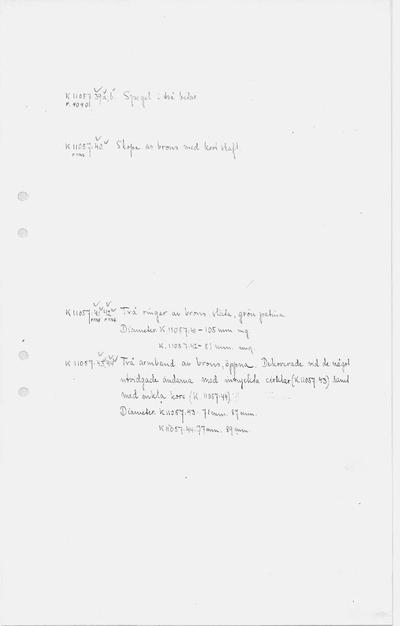 K 11057:39a,b. Spegel i två delar
K 11057:40 Skopa av brons med kort skaft.
K 11057:41, 42 Två ringar av brons, släta, grön patina
Diameter K 11057:41 - 105 mm.
K. 11057:42 - 81 mm.
K 11057:43,44 Två armband av brons, öppna. Dekorerade vid de något
ändarna med cirklar (K 11057:43) samt
med enkla kors (K. 11057:44)
Diameter K 11057:43 71 mm. 67 mm.
K 11057:44 77 mm. 89 mm.